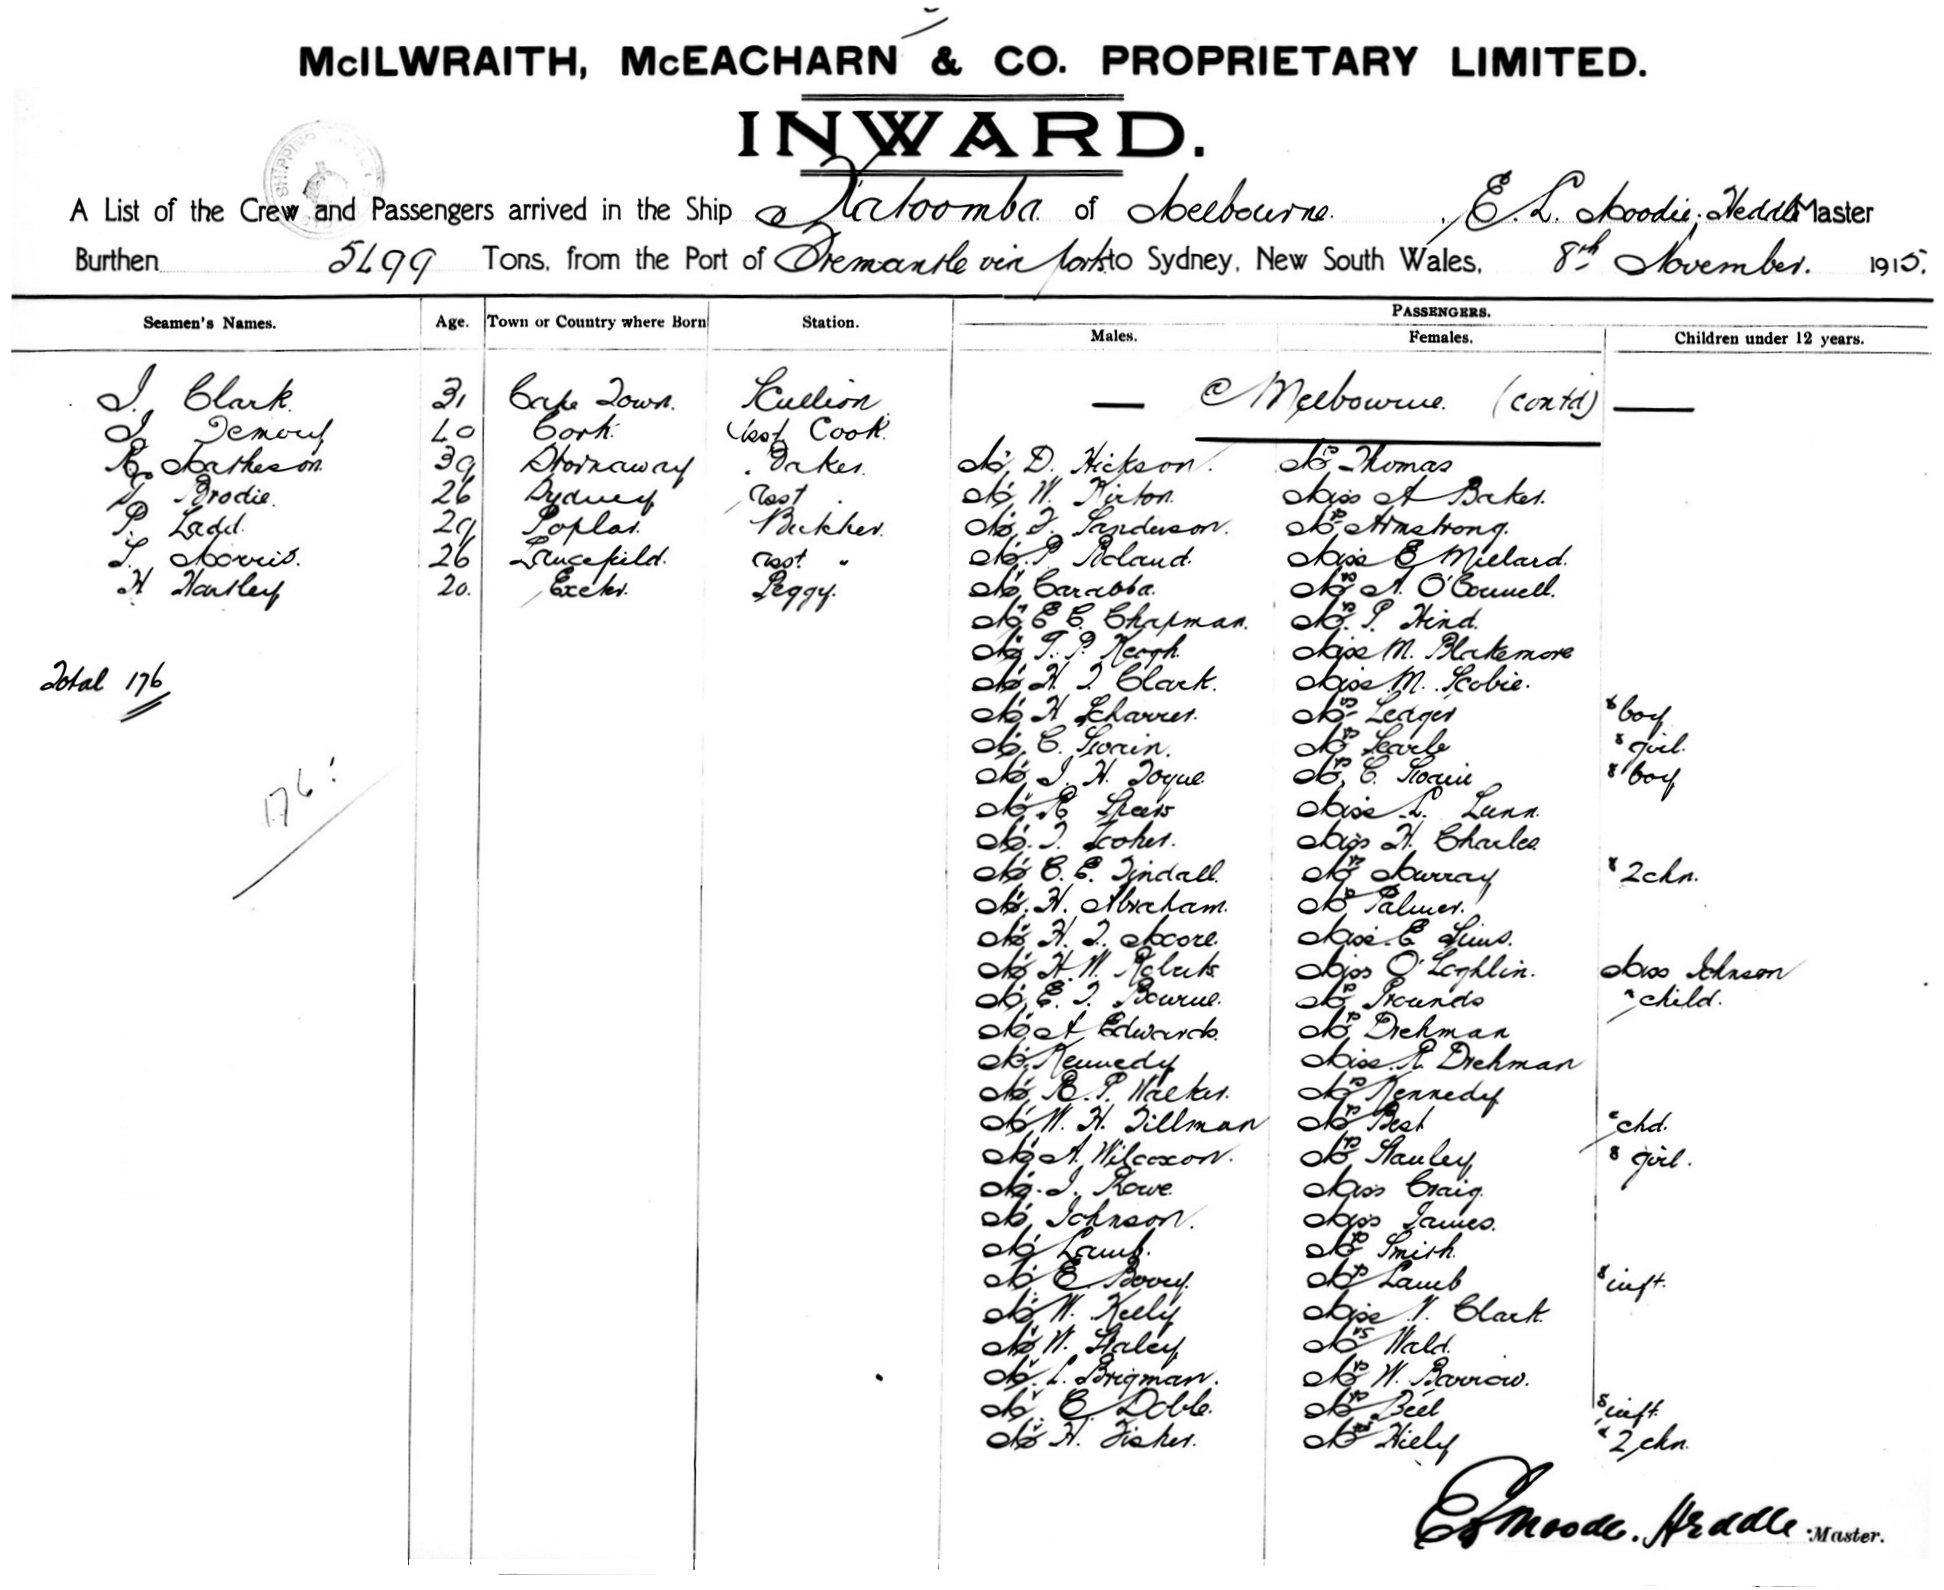 McILWRAITH, McEACHARN & CO. PROPRIETARY LIMITED.
INWARD.
A List of the Crew and Passengers arrived in the Ship Katoomba of Melbourne. E. L. Moodie, Heddle Master
Burthen 5499 Tons, from the Port of Fremantle via ports to Sydney, New South Wales, 8th November. 1915.
Seamen's Names. Age. Town or Country where Born Station. PASSENGERS.
Males. Females. Children under 12 years.
J. Clark. 31 Cape Town. Scullion
Melbourne. (contd)
J. 40 Cork. Asst. Cook.
R. Matheson. 39 Stornaway Baker. Mr. D. Hickson. Mrs Thomas
Brodie. 26 Sydney Asst. Mr W. Kirton. Miss A Baker.
P. Ladd. 29 Poplar. Butcher. Mr. J. Sanderson. Mrs Armstrong.
Morris. 26 Lancefield. asst " Mr. P. Roland. Miss E Millard.
H Hartley 20. Exeter. Peggy. Mr Carabba. Mrs A. O'Connell.
Mr E C. Chapman. Mrs. P. Hind.
Mr T. P. Keogh. Miss M. Blakemore
Total 176 Mr H. J. Clark. Miss M. Scobie.
Mr H Scharrer. Mrs Ledger & boy
Mr C. Swain. Mrs Searle & girl.
176 Mr J. H. Mrs. C. Swain & boy
Mr R Speers Miss L. Lunn.
Mr. J. Miss H. Charles
Mr C. E. Tindall. Mrs Murray & 2 chn.
Mr. H. Abraham. Mrs Palmer.
Mr H. J. Moore. Miss E Sims.
Mr H. W. Roberts Miss O'Loghlin. Miss Johnson
Mr. E. J. Bourne. Mrs Prounds & child.
Mr A Edwards. Mrs Drehman
Mr. Kennedy Miss R. Drehman
Mr R. P. Walker. Mrs Kennedy
Mr W. H. Tillman Mrs Best & chd.
Mr A. Wilcoxon. Mrs Stanley & girl.
Mr. J. Rowe. Miss Craig.
Mr Johnson. Miss James.
Mr Lamb. Mrs Smith.
Mr E. Mrs Lamb & inft.
Mr W. Kelly Miss V. Clark.
Mr W. Staley Mrs Wald.
Mr. L. Brigman. Mrs W. Barrow.
Mr C Doble. Mrs Beel & inft
Mr H. Fisher. Mrs Hiely & 2 chn.
E L Moodie. Heddle Master.